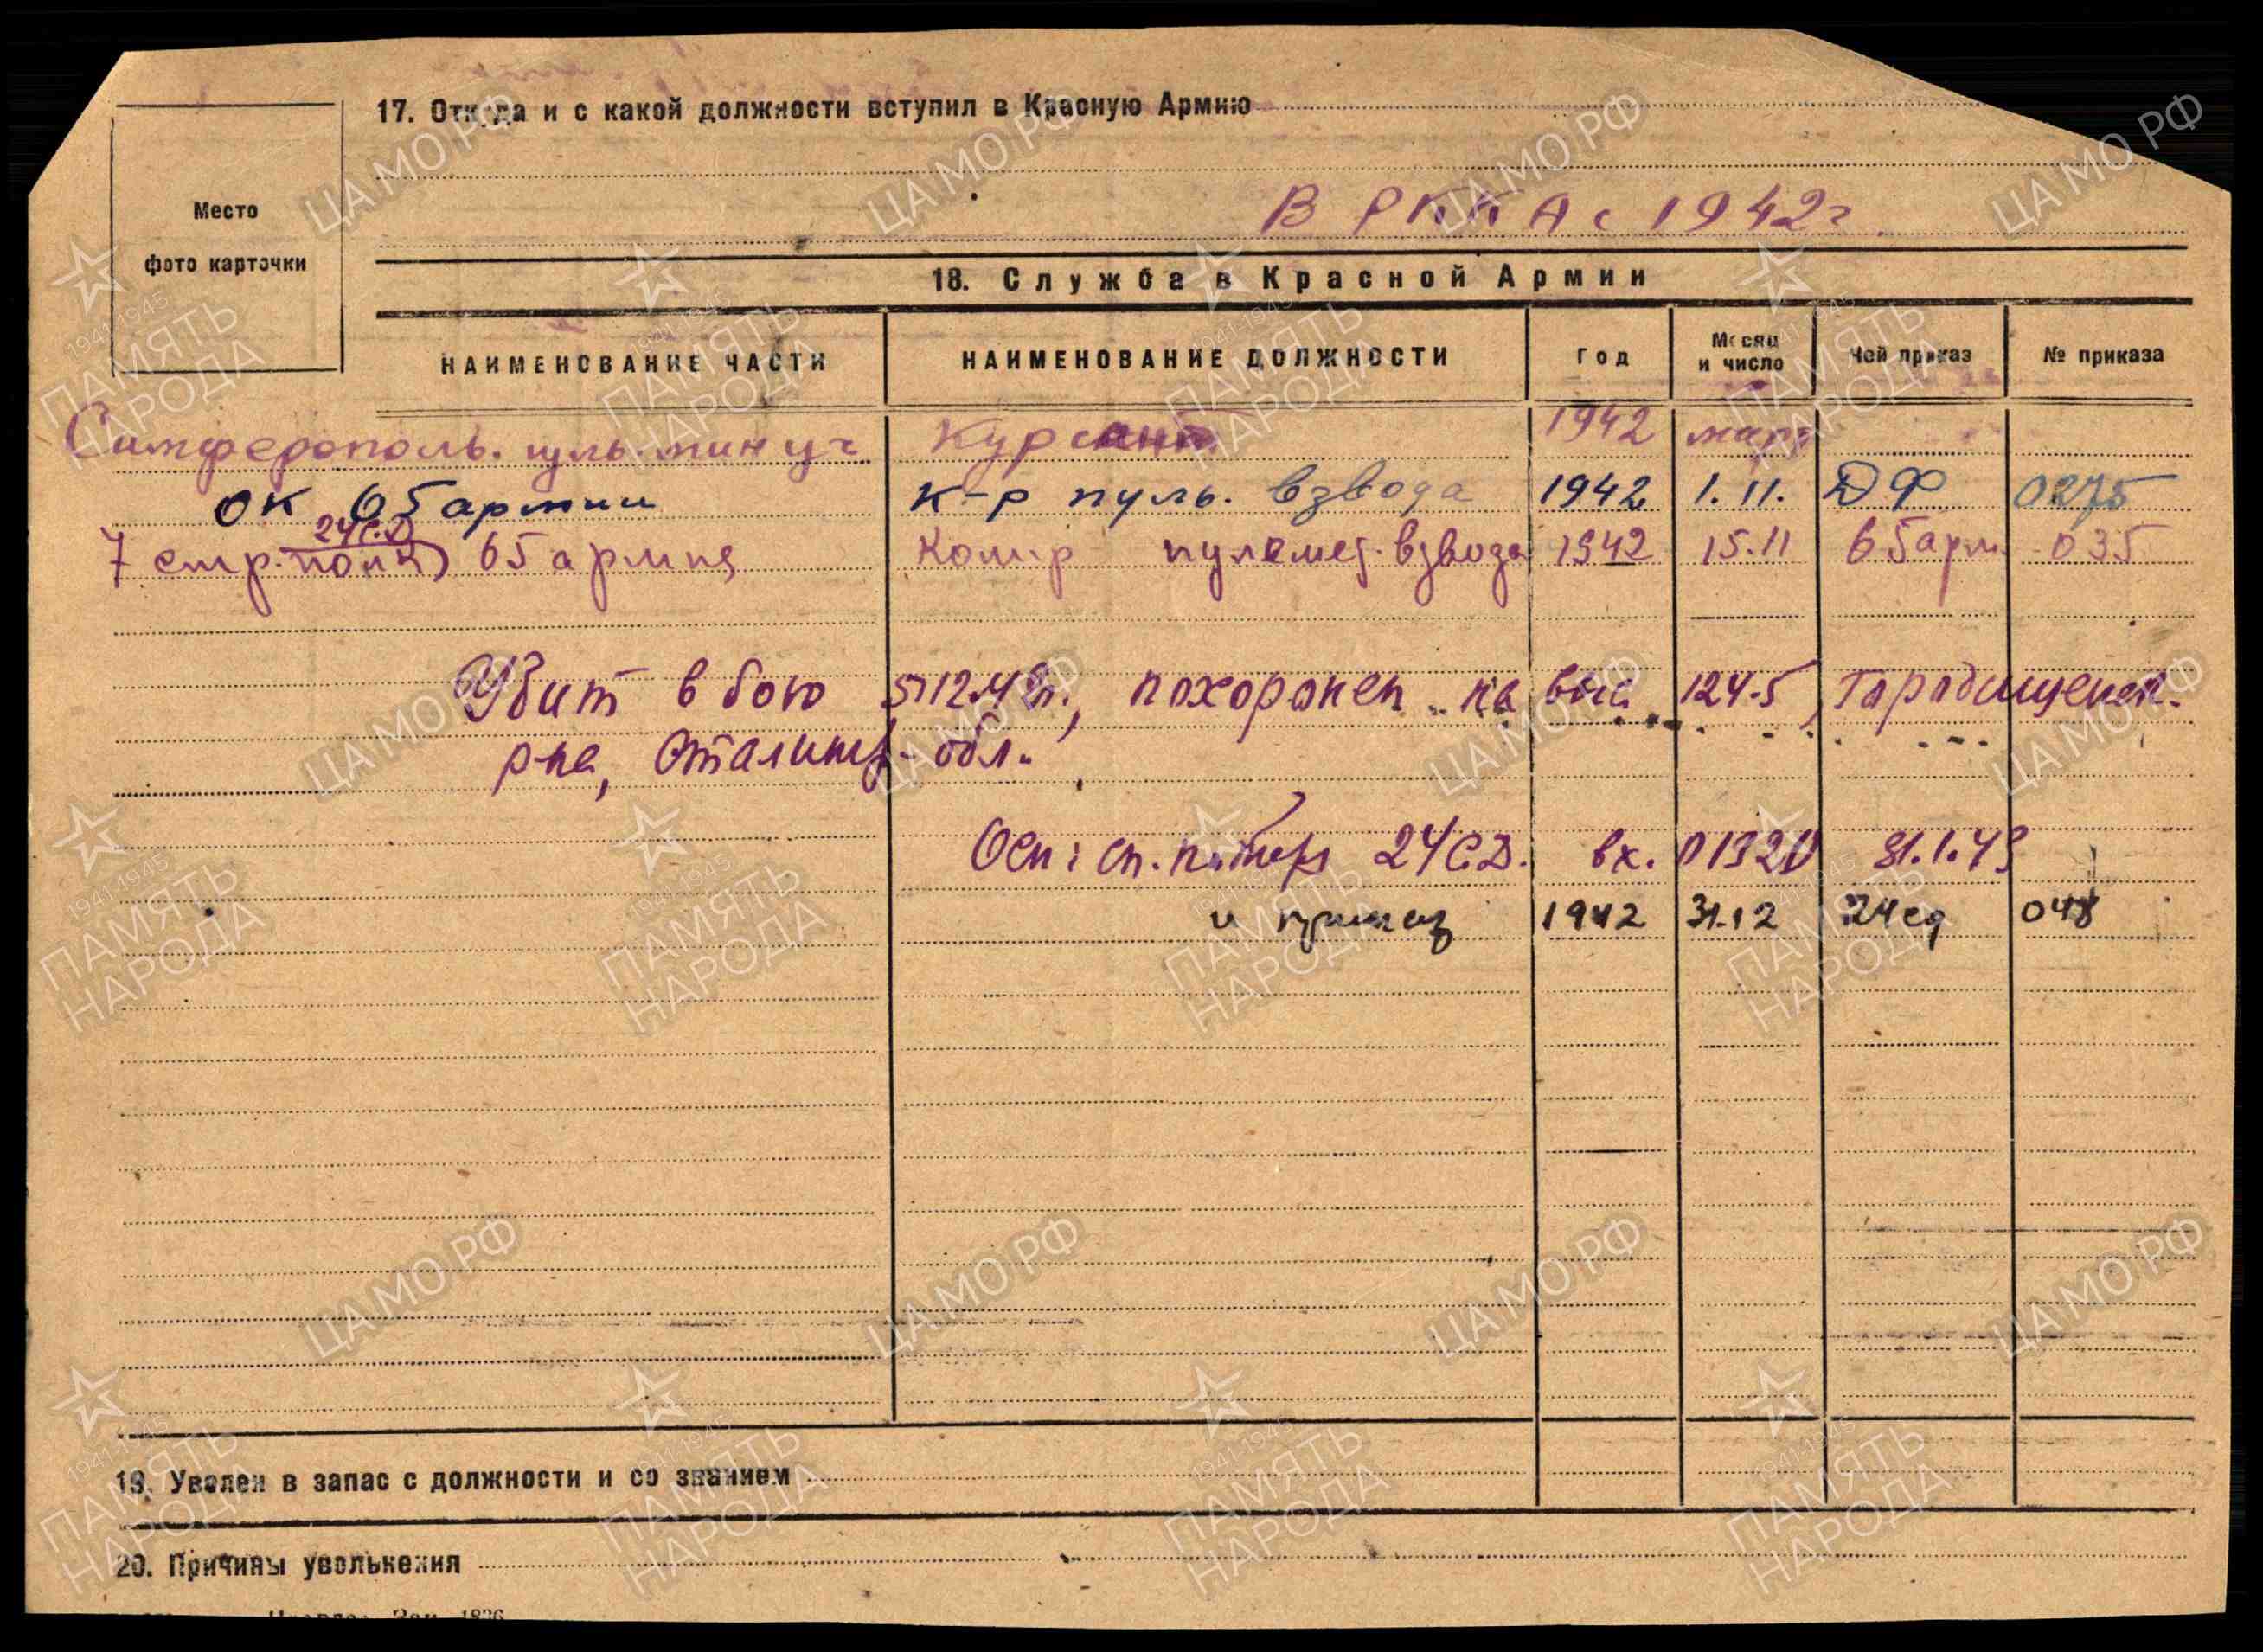 17. Откуда и с какой должности вступил в Красную Армию
Место
фото карточки
В РККА с 1942г.
18. Служба в Красной Армии
НАИМЕНОВАНИЕ ЧАСТИ НАИМЕНОВАНИЕ ДОЛЖНОСТИ Год Месяц и число Чей приказ № приказа
Симферополь. пуль. мин уч курсант 1942 март
ОК 65 армии к-р пуль. взвода 1942 1.11. ДФ 0275
24 С.Д
7 стр. полк 65 армия Комр пулемет. взвода 1942 15.11 65 арм 035
Убит в бою 5.12.42г., похоронен на выс 124.5, Городищенск.
р-на, Сталингр. обл.
Осн: сп. потерь 24 С.Д. вх. 01320 31.1.43
и приказ 1942 31.12 24 сд 048
19. Уволен в запас с должности и со званием
20. Причины увольнения
Зак. 1826
ЦАМО.РФ
1941-1945
ПАМЯТЬ
НАРОДА